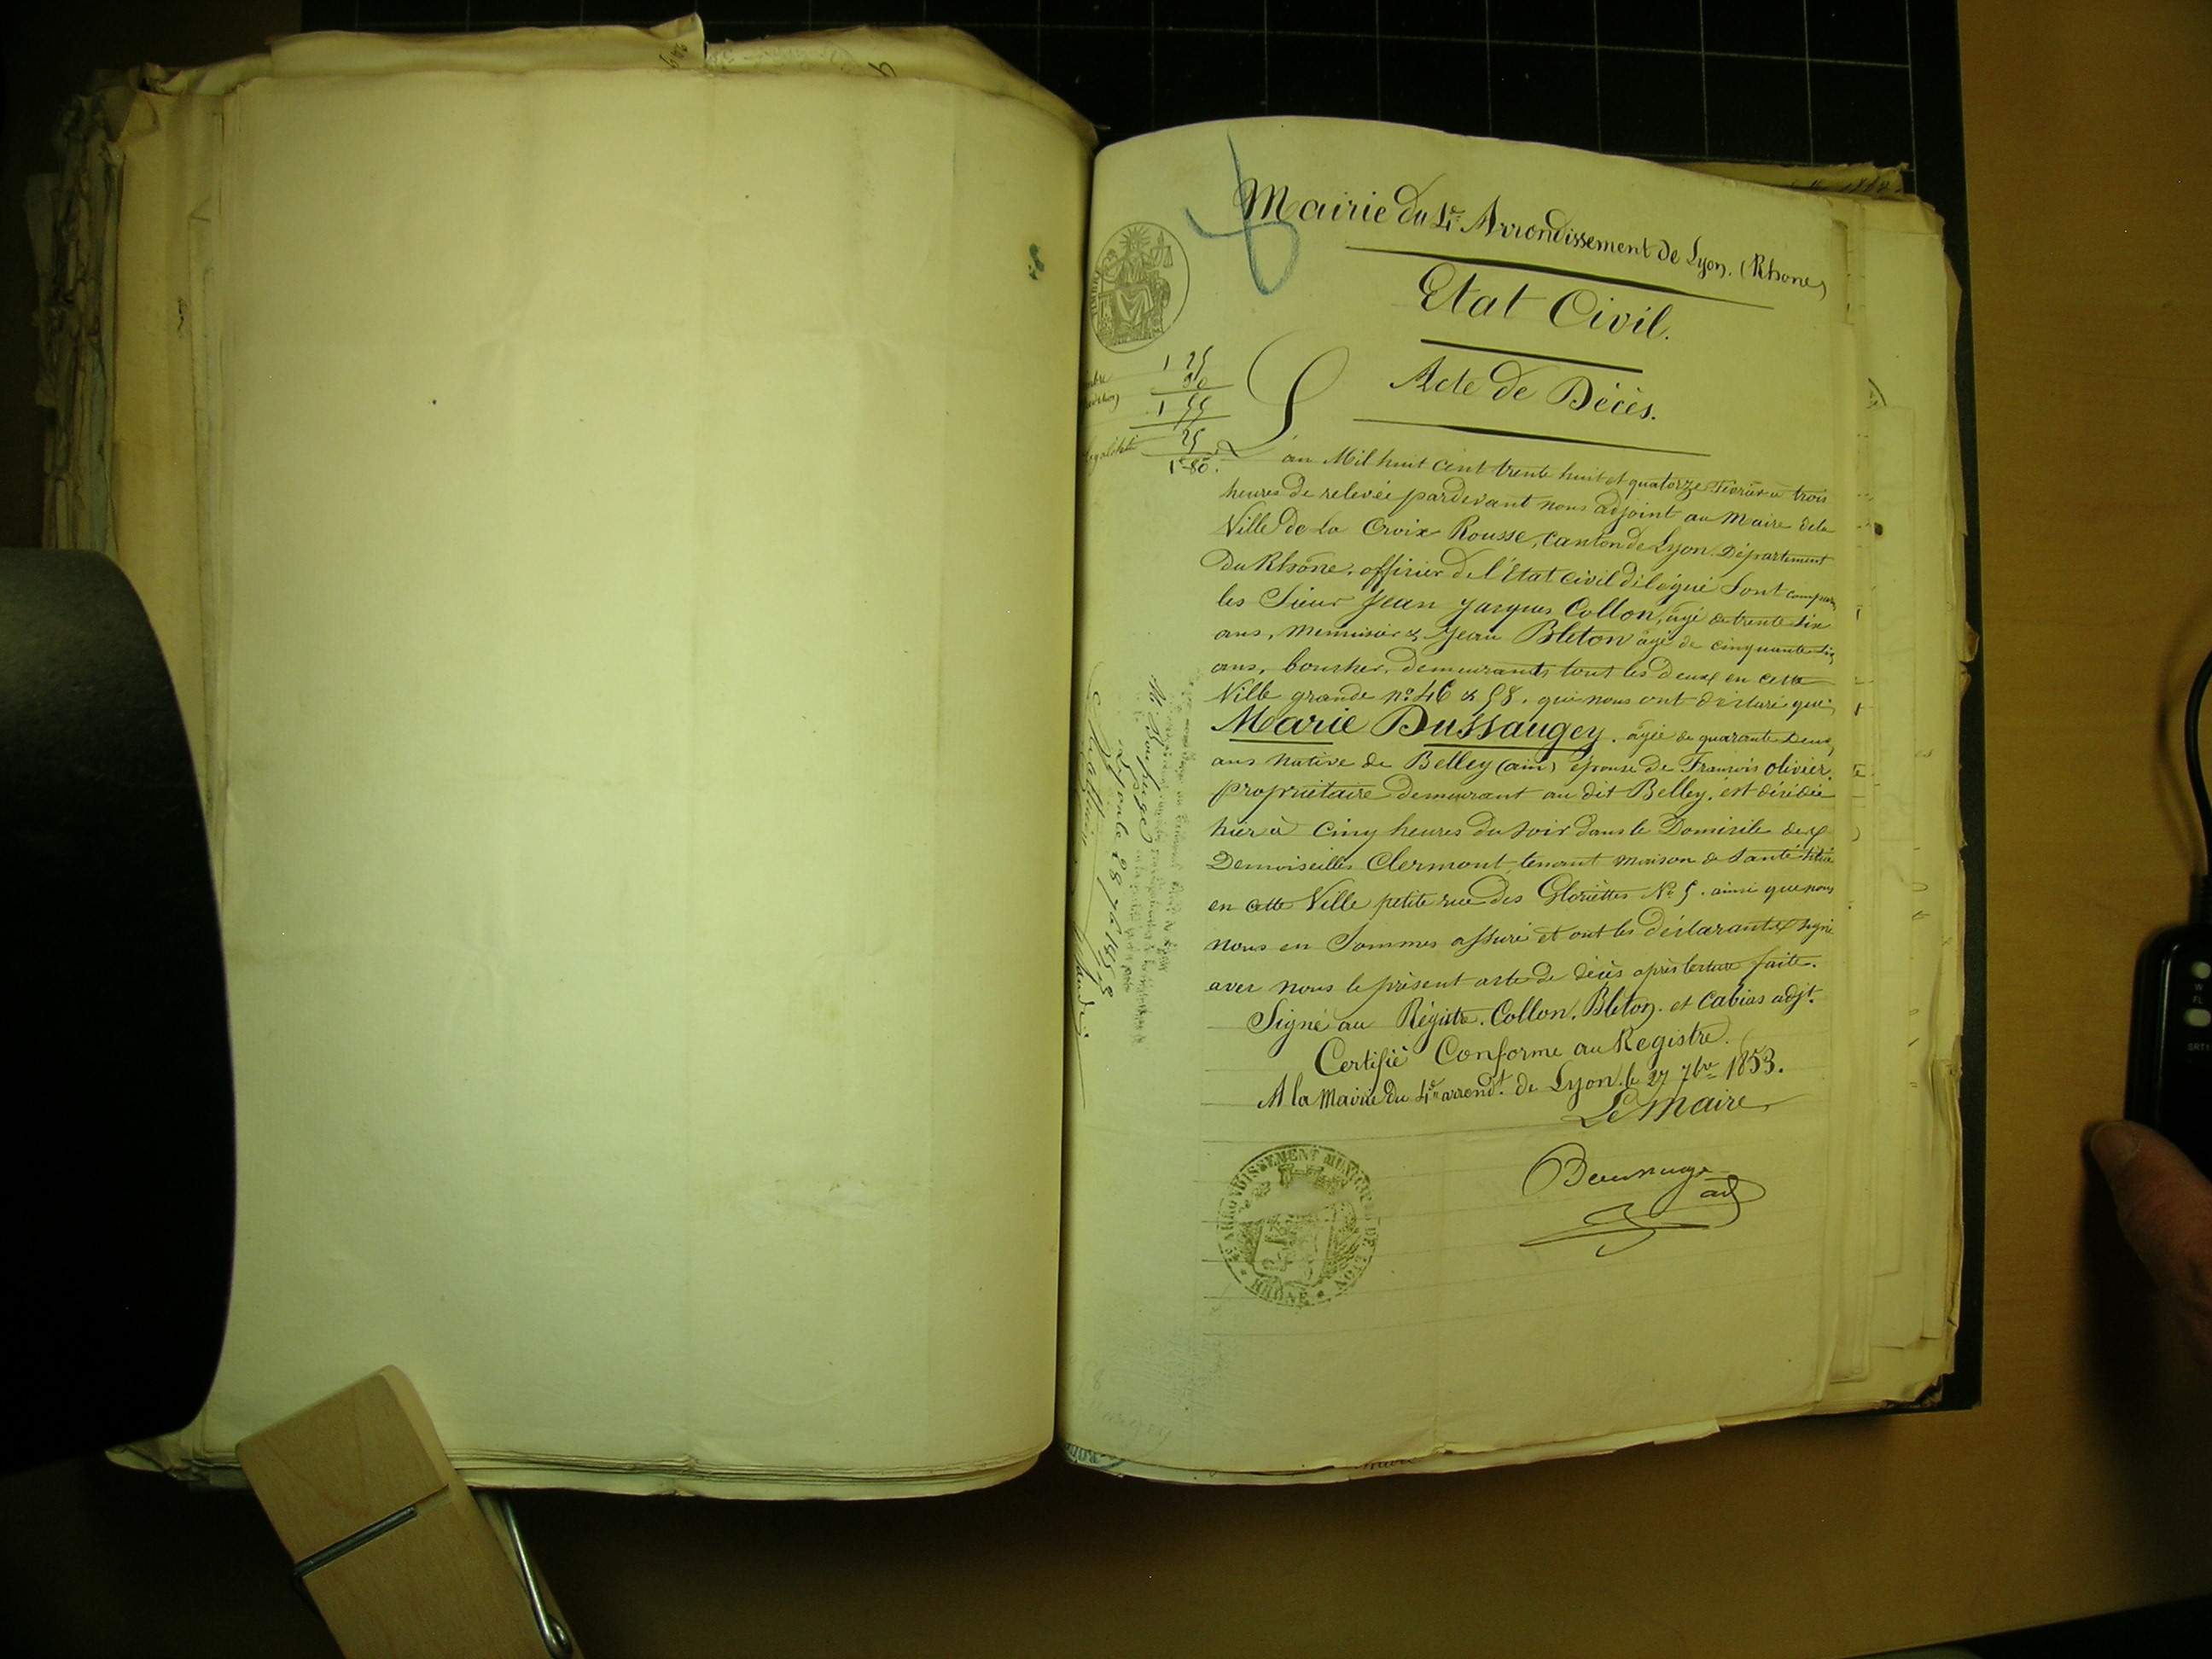 Mairie du 4e Arrondissement de Lyon. (Rhone)
Etat Civil.
Acte de Décès.
1 25
30
1 55
25
1 80
L'an Mil huit cent trente huit et quatorze Février à trois
heures de relevée pardevant nous adjoint au Maire de la
Ville de la Croix Rousse, canton de Lyon. Département
Du Rhône. officier de l'Etat civil délégué Sont comparus
les Sieur Jean Jacques Collon, âgé de trente six
ans, Menuisier & Jean Bleton âgé de cinquante six
ans, boucher, demeurants tous les deux en cette
Ville grande no. 46 & 58. qui nous ont déclaré que
Marie Dussaugey. âgée de quarante deux
ans native de Belley (ain) épouse de François Olivier.
propriétaire demeurant au dit Belley, est décédée
hier à Cinq heures du soir dans le Domicile des
Demoiselles Clermont, tenant maison de santé située
en cette Ville petite rue des Gloriettes No. 5. ainsi que nous
nous en Sommes assuré et ont les déclarants signé
avec nous le présent acte de décès après lecture faite.
Signé au Régistre. Collon. Bleton. et Cabias adjt.
Certifié Conforme au Registre.
A la Mairie du 4e arrondt. de Lyon. le 27 7bre 1853.
Le Maire
ad
4e ARRONDISSEMENT MUNICIPAL DE LYON
RHÔNE